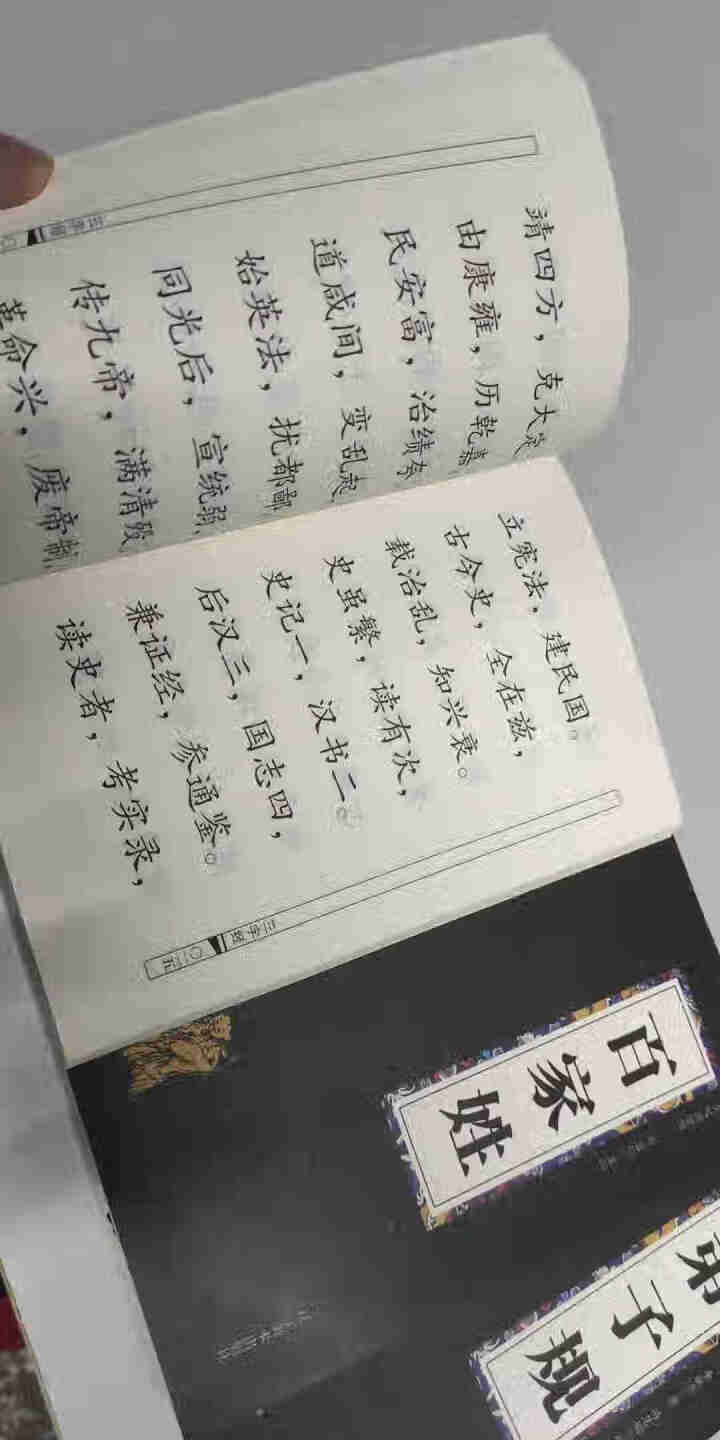 靖四方，克大定
由康雍，历乾嘉
民安富，治绩夸
道咸间，变乱起
始英法，扰都鄙
同光后，宣统弱
传九帝，满清殁
革命兴，废帝制
立宪法，建民国。
古今史，全在兹，
载治乱，知兴衰。
史虽繁，读有次，
史记一，汉书二。
后汉三，国志四，
兼证经，参通鉴。
读史者，考实录，
三字经
一〇五
百家姓
弟子规